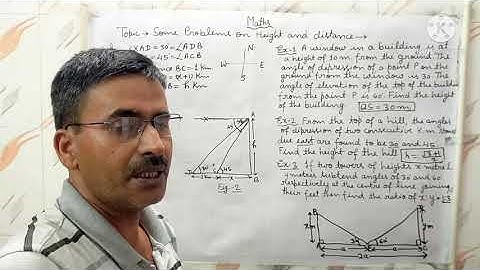 Maths
Topic → Some Problems on Height and distance →
∠XAD = 30 = ∠ADB
= 45 = ∠ACB
BC = 1 Km
Km
B = h Km
N
W E
S
Ex-1 A window in a building is at
a height of 10 m from the ground. The
angle of depression of a point P on the
ground from the window is 30. The
angle of elevation of the top of the building
from the point P is 60. Find the height
of the building. QS = 30 m
Ex-2 From the top of a hill, the angles
of depression of two consecutive K.m. stones
due east are found to be 30 and 45.
Find the height of the hill. h =
Ex-3 If two towers of height x m and
y meters subtend angles of 30 and 60
respectively at the centre of line joining
their feet then find the ratio of x:y = 1:3
A
45
30
45
h
B
Fig-2
x m
30
60
y m
a
a
2a